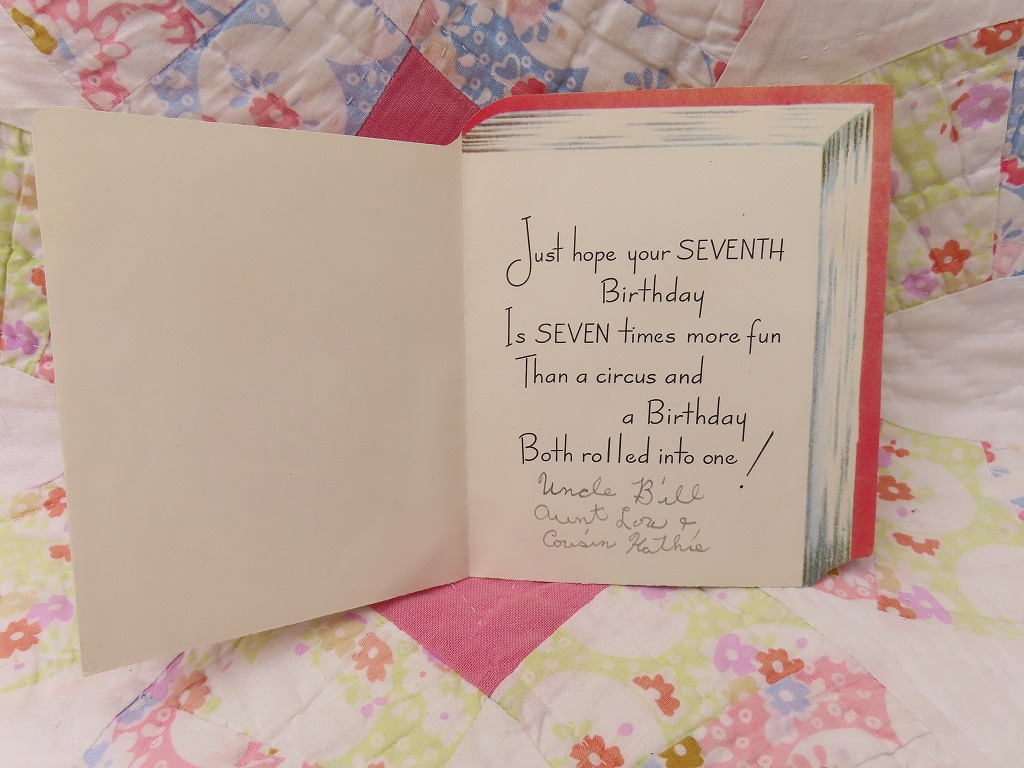 Just hope your SEVENTH
Birthday
Is SEVEN times more fun
Than a circus and
a Birthday
Both rolled into one!
Uncle Bill
Aunt Lou &
Cousin Kathie